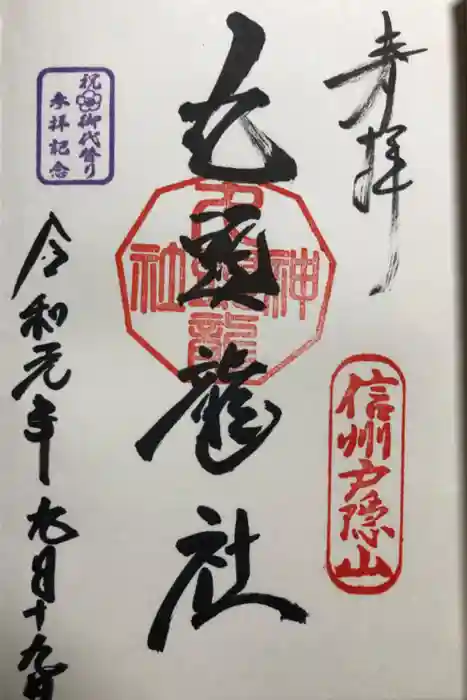 奉拝
信州戸隠山
九頭龍社
九頭龍神社
祝御代替り
参拝記念
令和元年九月十九日